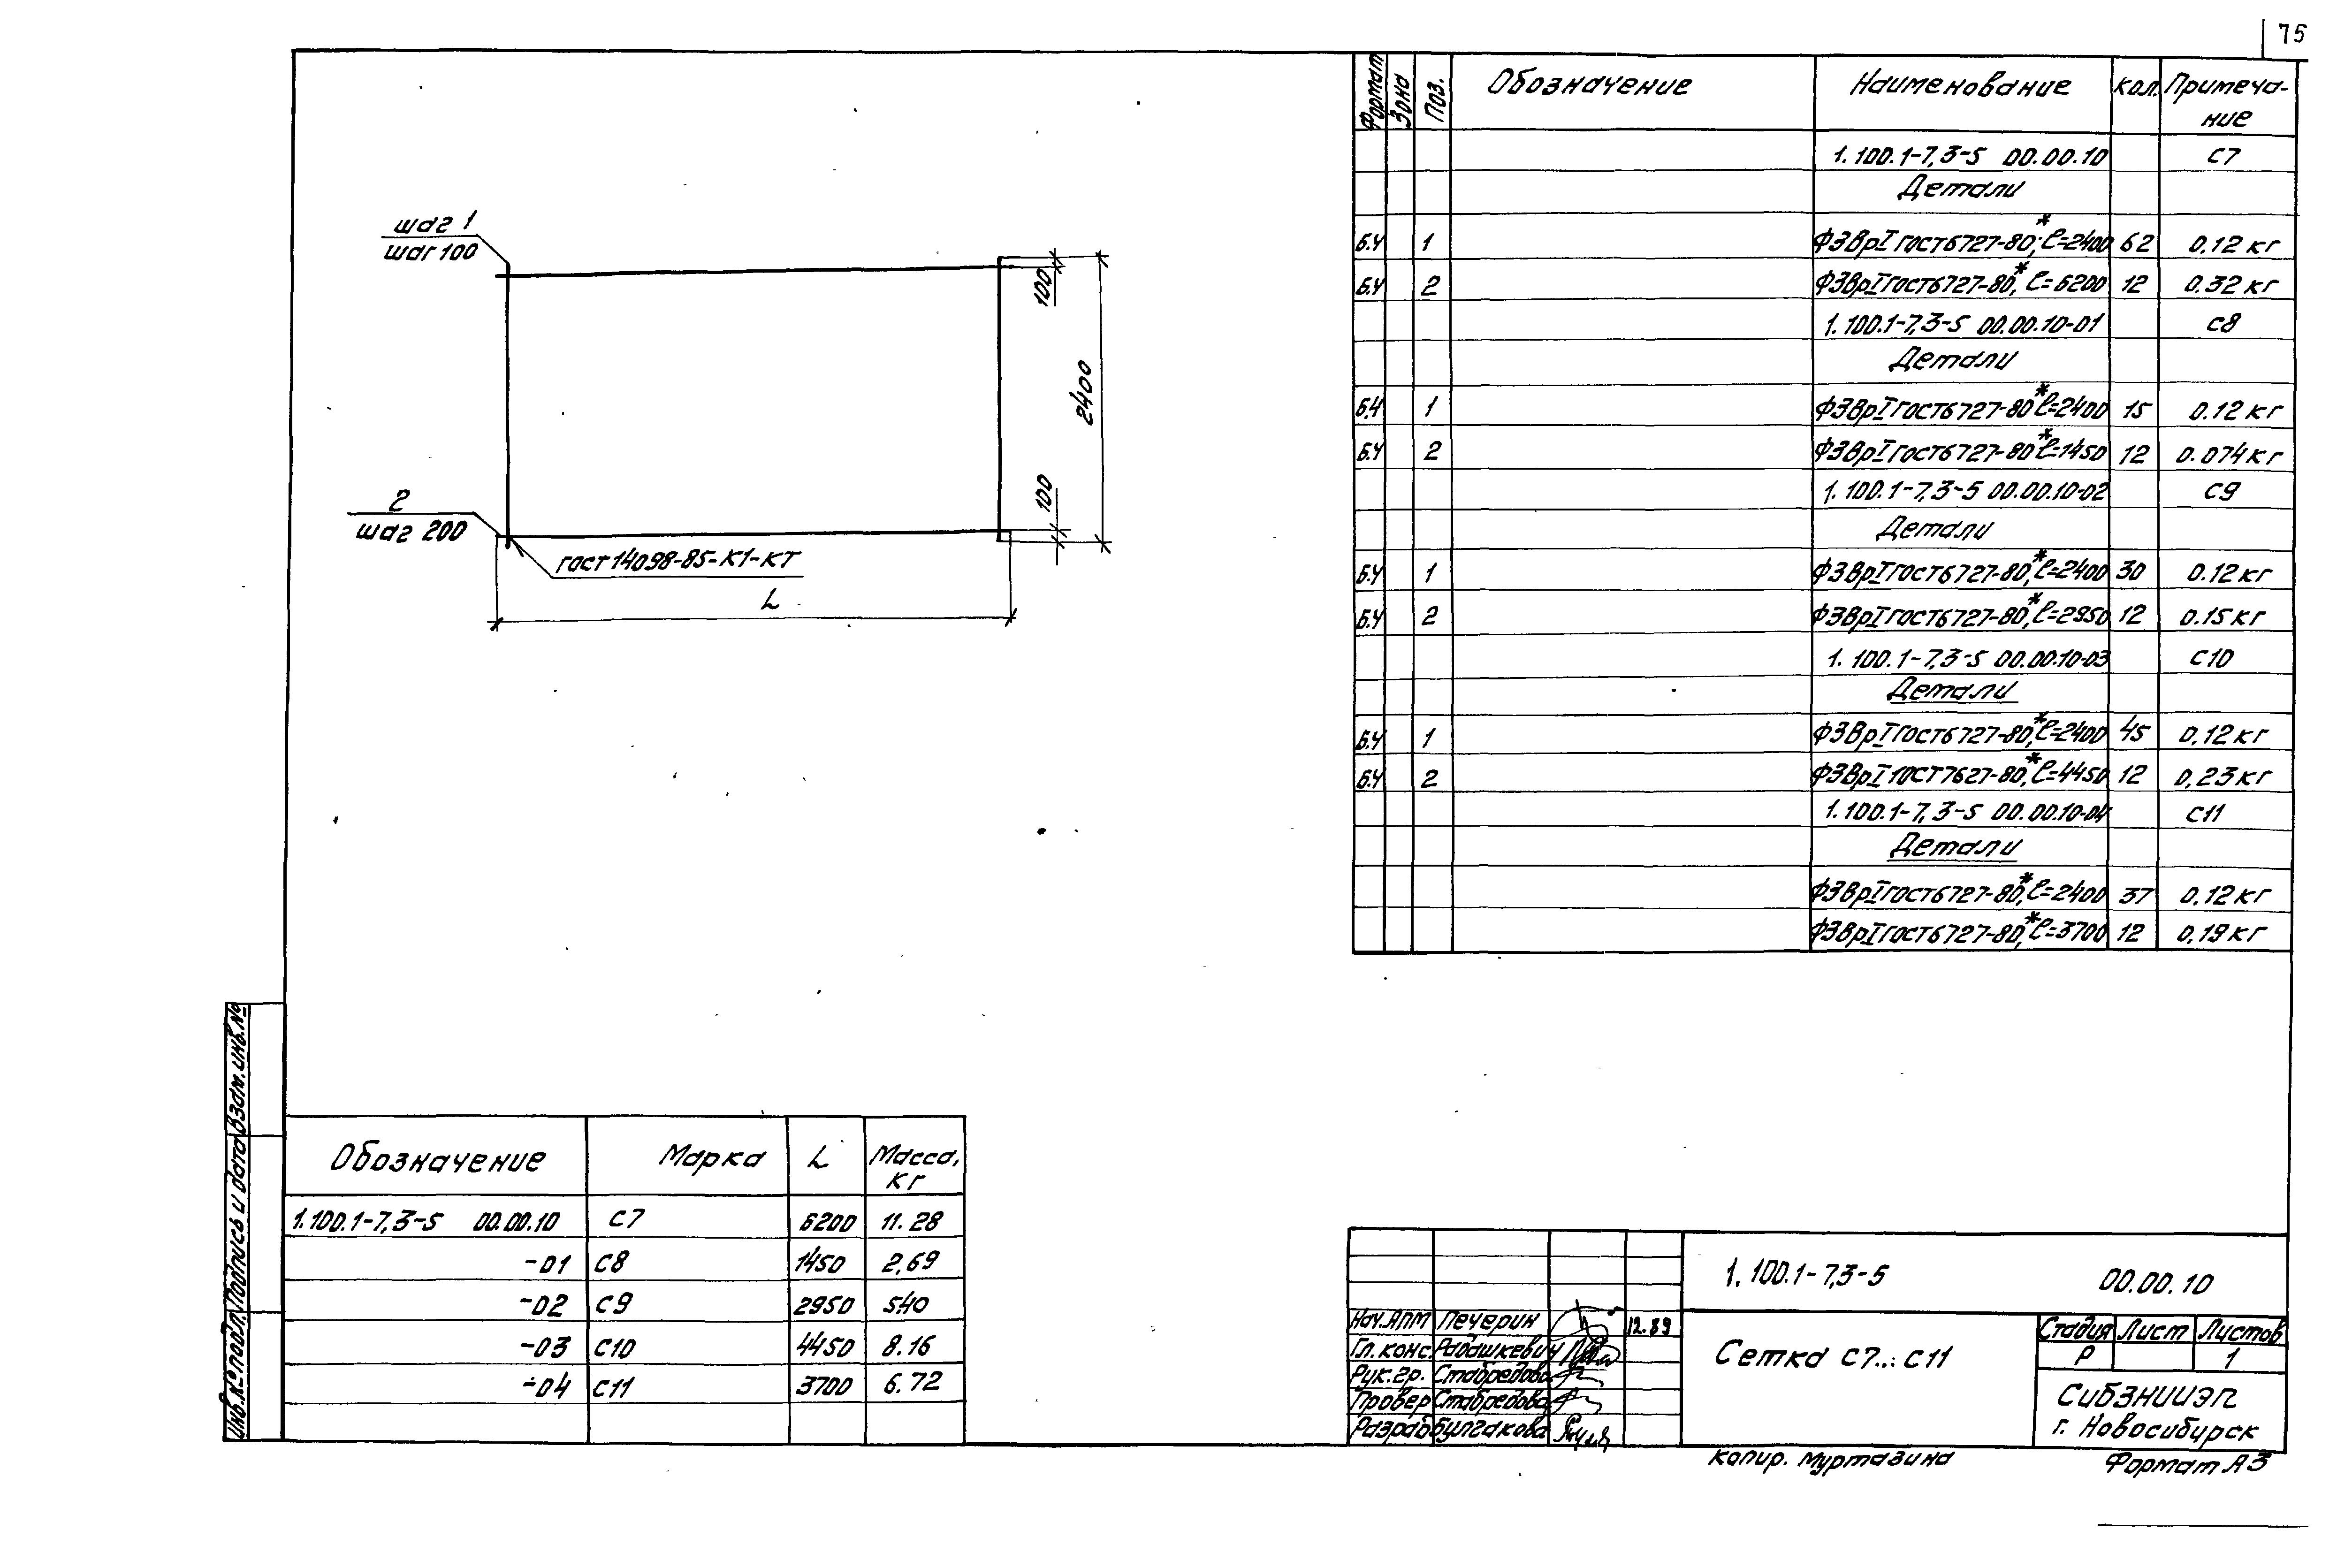 75
Формат Зона Поз. Обозначение Наименование Кол. Примеча-
ние
1.100.1-7,3-5 00.00.10 С7
Детали
Б.Ч 1 Ф3ВрI ГОСТ6727-80,* ℓ=2400 62 0,12 кг
Б.Ч 2 Ф3ВрI ГОСТ6727-80,* ℓ=6200 12 0.32 кг
1.100.1-7,3-5 00.00.10-01 С8
Детали
Б.Ч 1 Ф3ВрI ГОСТ6727-80* ℓ=2400 15 0.12 кг
Б.Ч 2 Ф3ВрI ГОСТ6727-80* ℓ=1450 12 0.074 кг
1.100.1-7,3-5 00.00.10-02 С9
Детали
Б.Ч 1 Ф3ВрI ГОСТ6727-80,* ℓ=2400 30 0.12 кг
Б.Ч 2 Ф3ВрI ГОСТ6727-80,* ℓ=2950 12 0.15 кг
1.100.1-7,3-5 00.00.10-03 С10
Детали
Б.Ч 1 Ф3ВрI ГОСТ6727-80,* ℓ=2400 45 0,12 кг
Б.Ч 2 Ф3ВрI ГОСТ7627-80,* ℓ=4450 12 0,23 кг
1.100.1-7,3-5 00.00.10-04 С11
Детали
Ф3ВрI ГОСТ6727-80,* ℓ=2400 37 0,12 кг
Ф3ВрI ГОСТ6727-80,* ℓ=3700 12 0,19 кг
шаг 1
шаг 100
100
2400
100
2
шаг 200
ГОСТ 14098-85-К1-КТ
L
Обозначение Марка L Масса,
кг
1.100.1-7,3-5 00.00.10 С7 6200 11.28
-01 С8 1450 2,69
-02 С9 2950 5.40
-03 С10 4450 8.16
-04 С11 3700 6.72
Инв.№ подл. Подпись и дата Взам.инв.№
1.100.1-7,3-5 00.00.10
Нач.АПМ Печерин 12.89
Гл.конс. Радашкевич
Рук.гр. Ставредова
Провер Ставредова
Разраб Булгакова
Сетка С7...С11
Стадия Лист Листов
Р 1
СибЗНИИЭП
г. Новосибирск
Копир. Муртазина Формат А3